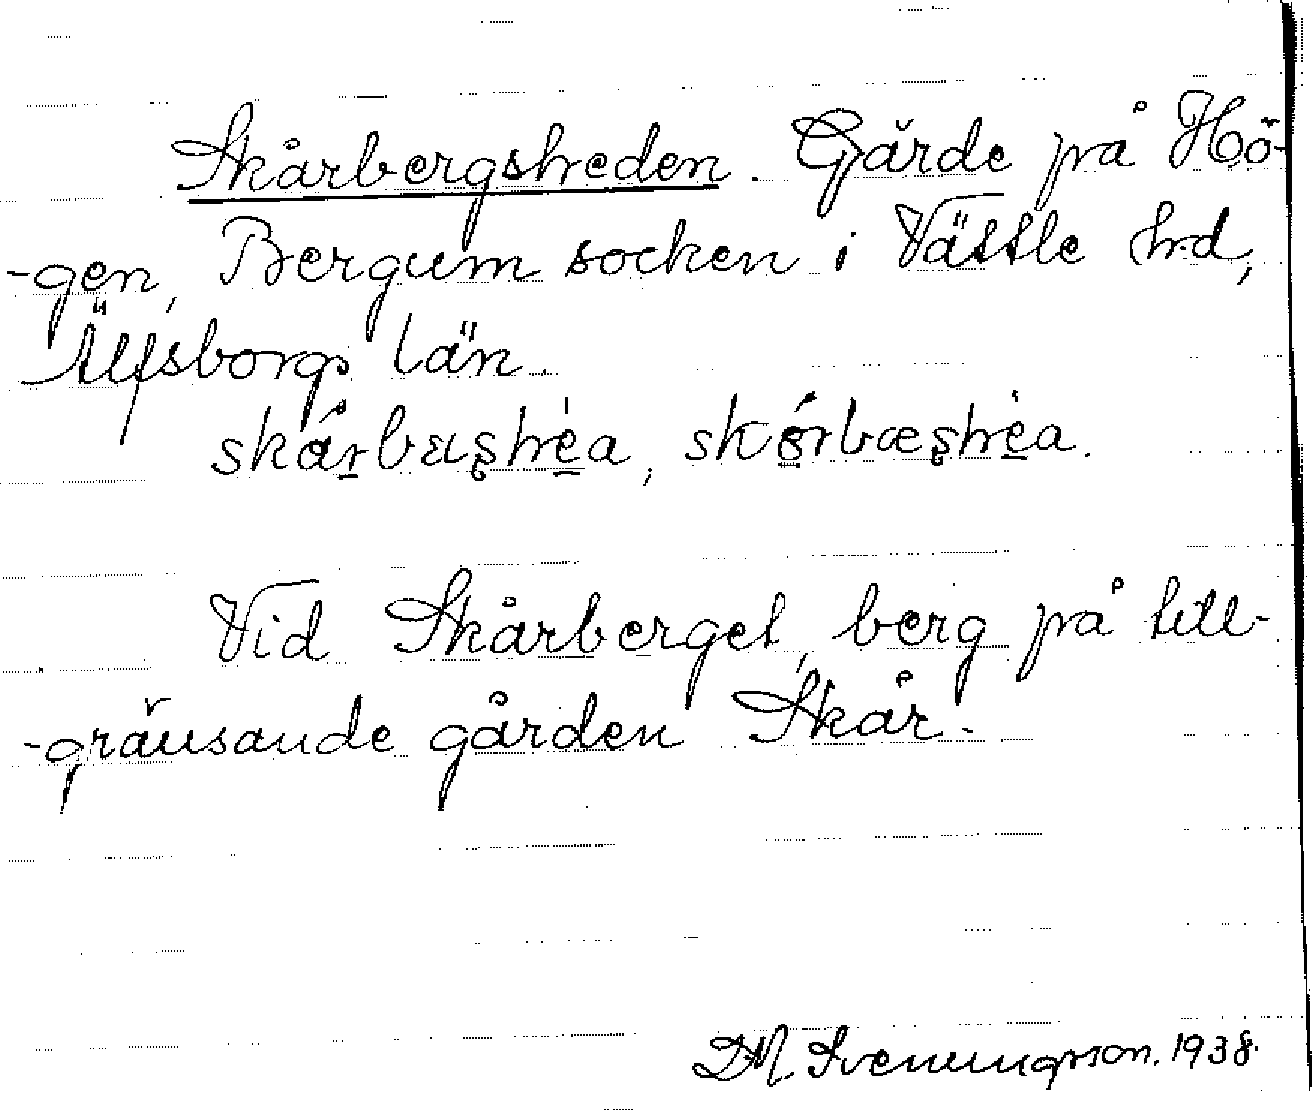 Skårbergsheden. Gärde på Hö-
-gen, Bergum socken i Vättle hd,
Älfsborgs län.
skårbæʂhèa, skórbæʂhèa.
Vid Skårberget, berg på till-
-gränsande gården Skår.
D.M. Svenungsson. 1938.